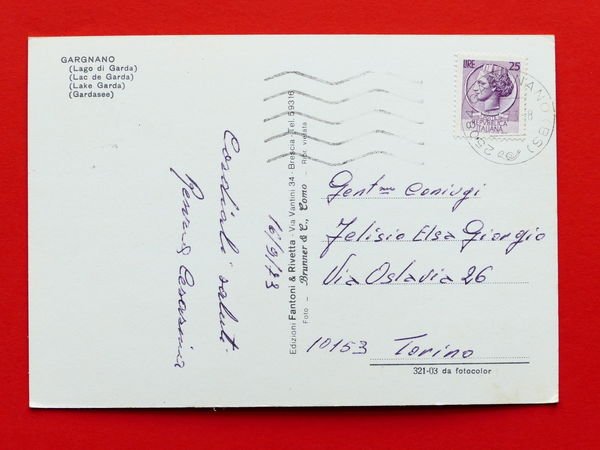 GARGNANO
(Lago di Garda)
(Lac de Garda)
(Lake Garda)
(Gardasee)
Cordiali saluti
Cesarina
16/9/73
Edizioni Fantoni & Rivetta - Via Vantini 34 - Brescia - Tel. 59316
Foto - Brunner & C., Como - Ripr. vietata
LIRE 25
REPUBBLICA
ITALIANA
Gent.mi Coniugi
Felisio Elsa Giorgio
Via Oslavia 26
10153 Torino
321-03 da fotocolor